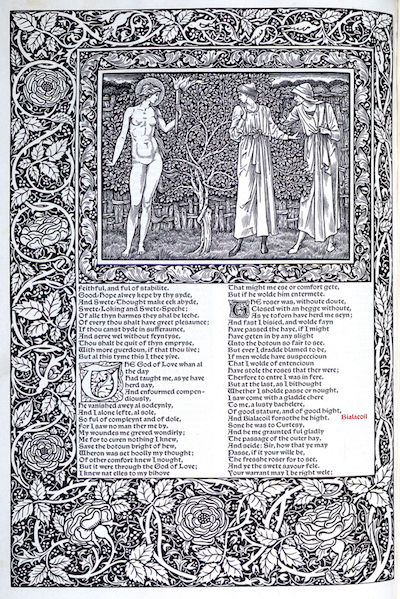 feithful, and ful of stabilite.
Good-Hope alwey kepe by thy syde,
And Swete-Thought make eek abyde,
Swete-Loking and Swete-Speche;
Of alle thyn harmes they shal be leche.
Of every thou shalt have greet plesaunce;
If thou canst byde in sufferaunce,
And serve wel without feyntyse,
Thou shalt be quit of thyn empryse,
With more guerdoun, if that thou live;
But al this tyme this I thee yive.
THE God of Love whan al
the day
Had taught me, as ye have
herd say,
And enfourmed compen-
diously,
He vanished awey al sodeynly,
And I alone lefte, al sole,
So ful of compleynt and of dole,
For I saw no man ther me by.
My woundes me greved wondirly;
Me for to curen nothing I knew,
Save the botoun bright of hew,
Wheron was set hoolly my thought;
Of other comfort knew I nought,
But it were through the God of Love;
I knew nat elles to my bihove
That might me ese or comfort gete,
But if he wolde him entermete.
THE roser was, withoute doute,
Closed with an hegge withoute,
As ye toforn have herd me seyn;
And fast I bisied, and wolde fayn
Have passed the haye, if I might
Have geten in by any slight
Unto the botoun so fair to see.
But ever I dradde blamed to be,
If men wolde have suspeccioun
That I wolde of entencioun
Have stole the roses that ther were;
Therfore to entre I was in fere.
But at the last, as I bithought
Whether I sholde passe or nought,
I saw come with a gladde chere
To me, a lusty bachelere,
Of good stature, and of good hight,
And Bialacoil forsothe he hight. Bialacoil
Sone he was to Curtesy,
And he me graunted ful gladly
The passage of the outer hay,
And seide: Sir, how that ye may
Passe, if it your wille be,
The fresshe roser for to see,
And ye the swete savour fele.
Your warrant may I be right wele;